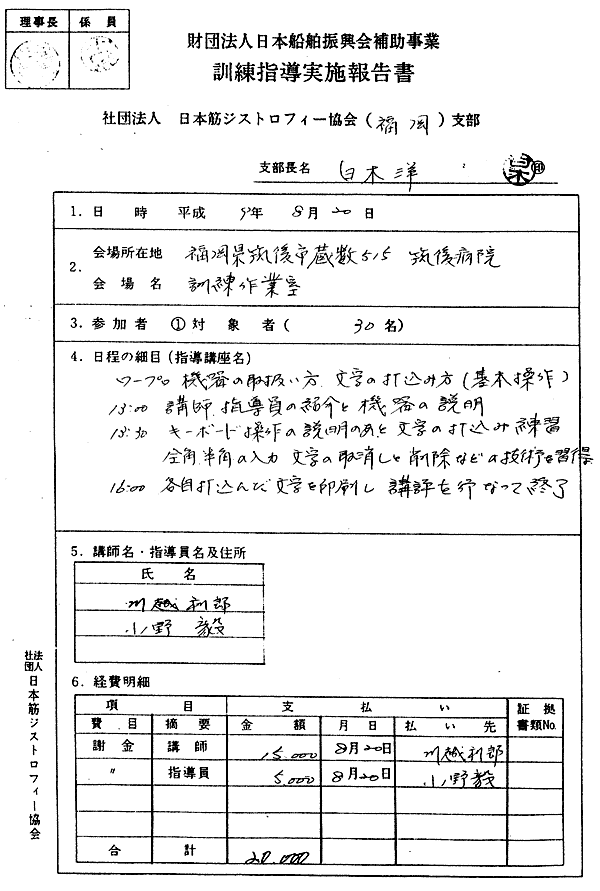 理事長 係員
財団法人日本船舶振興会補助事業
訓練指導実施報告書
社団法人 日本筋ジストロフィー協会(福岡)支部
支部長名 白木洋 印
1.日 時 平成 9年 8月 20日
2.会場所在地 福岡県筑後市蔵数515 筑後病院
会場名 訓練作業室
3.参加者 ①対象者( 30名)
4.日程の細目(指導講座名)
ワープロ機器の取扱い方、文字の打込み方(基本操作)
13:00 講師、指導員の紹介と機器の説明
13:30 キーボード操作の説明のあと文字の打込み練習
全角半角の入力 文字の取消しと削除などの技術を習得
16:00 各自打込んだ文字を印刷し 講評を行なって終了
5.講師名・指導員名及住所
氏 名
川越利郎
小野 毅
6.経費明細
項 目 支 払 い 証拠書類No.
費目 摘要 金額 月日 払い先
謝金 講師 15.000 8月20日 川越利郎
〃 指導員 5.000 8月20日 小野毅
合 計 20.000
社団法人 日本筋ジストロフィー協会